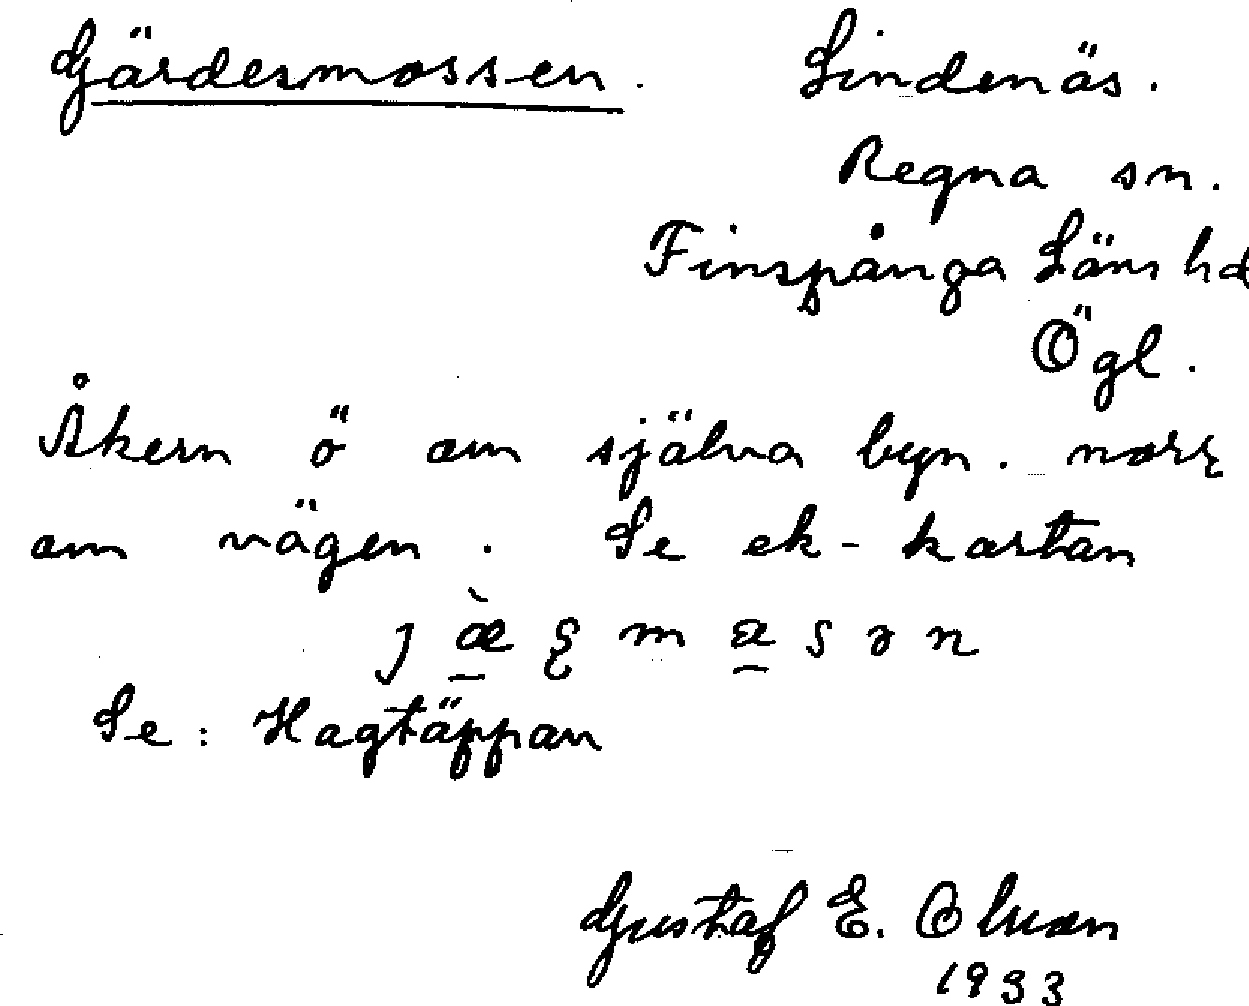 Gärdesmossen. Lindenäs.
Regna sn.
Finspånga Läns hd
Ögl.
Åkern ö om själva byn. norr
om vägen. Se ek-kartan
Se: Hagtäppan
Gustaf E.
1933